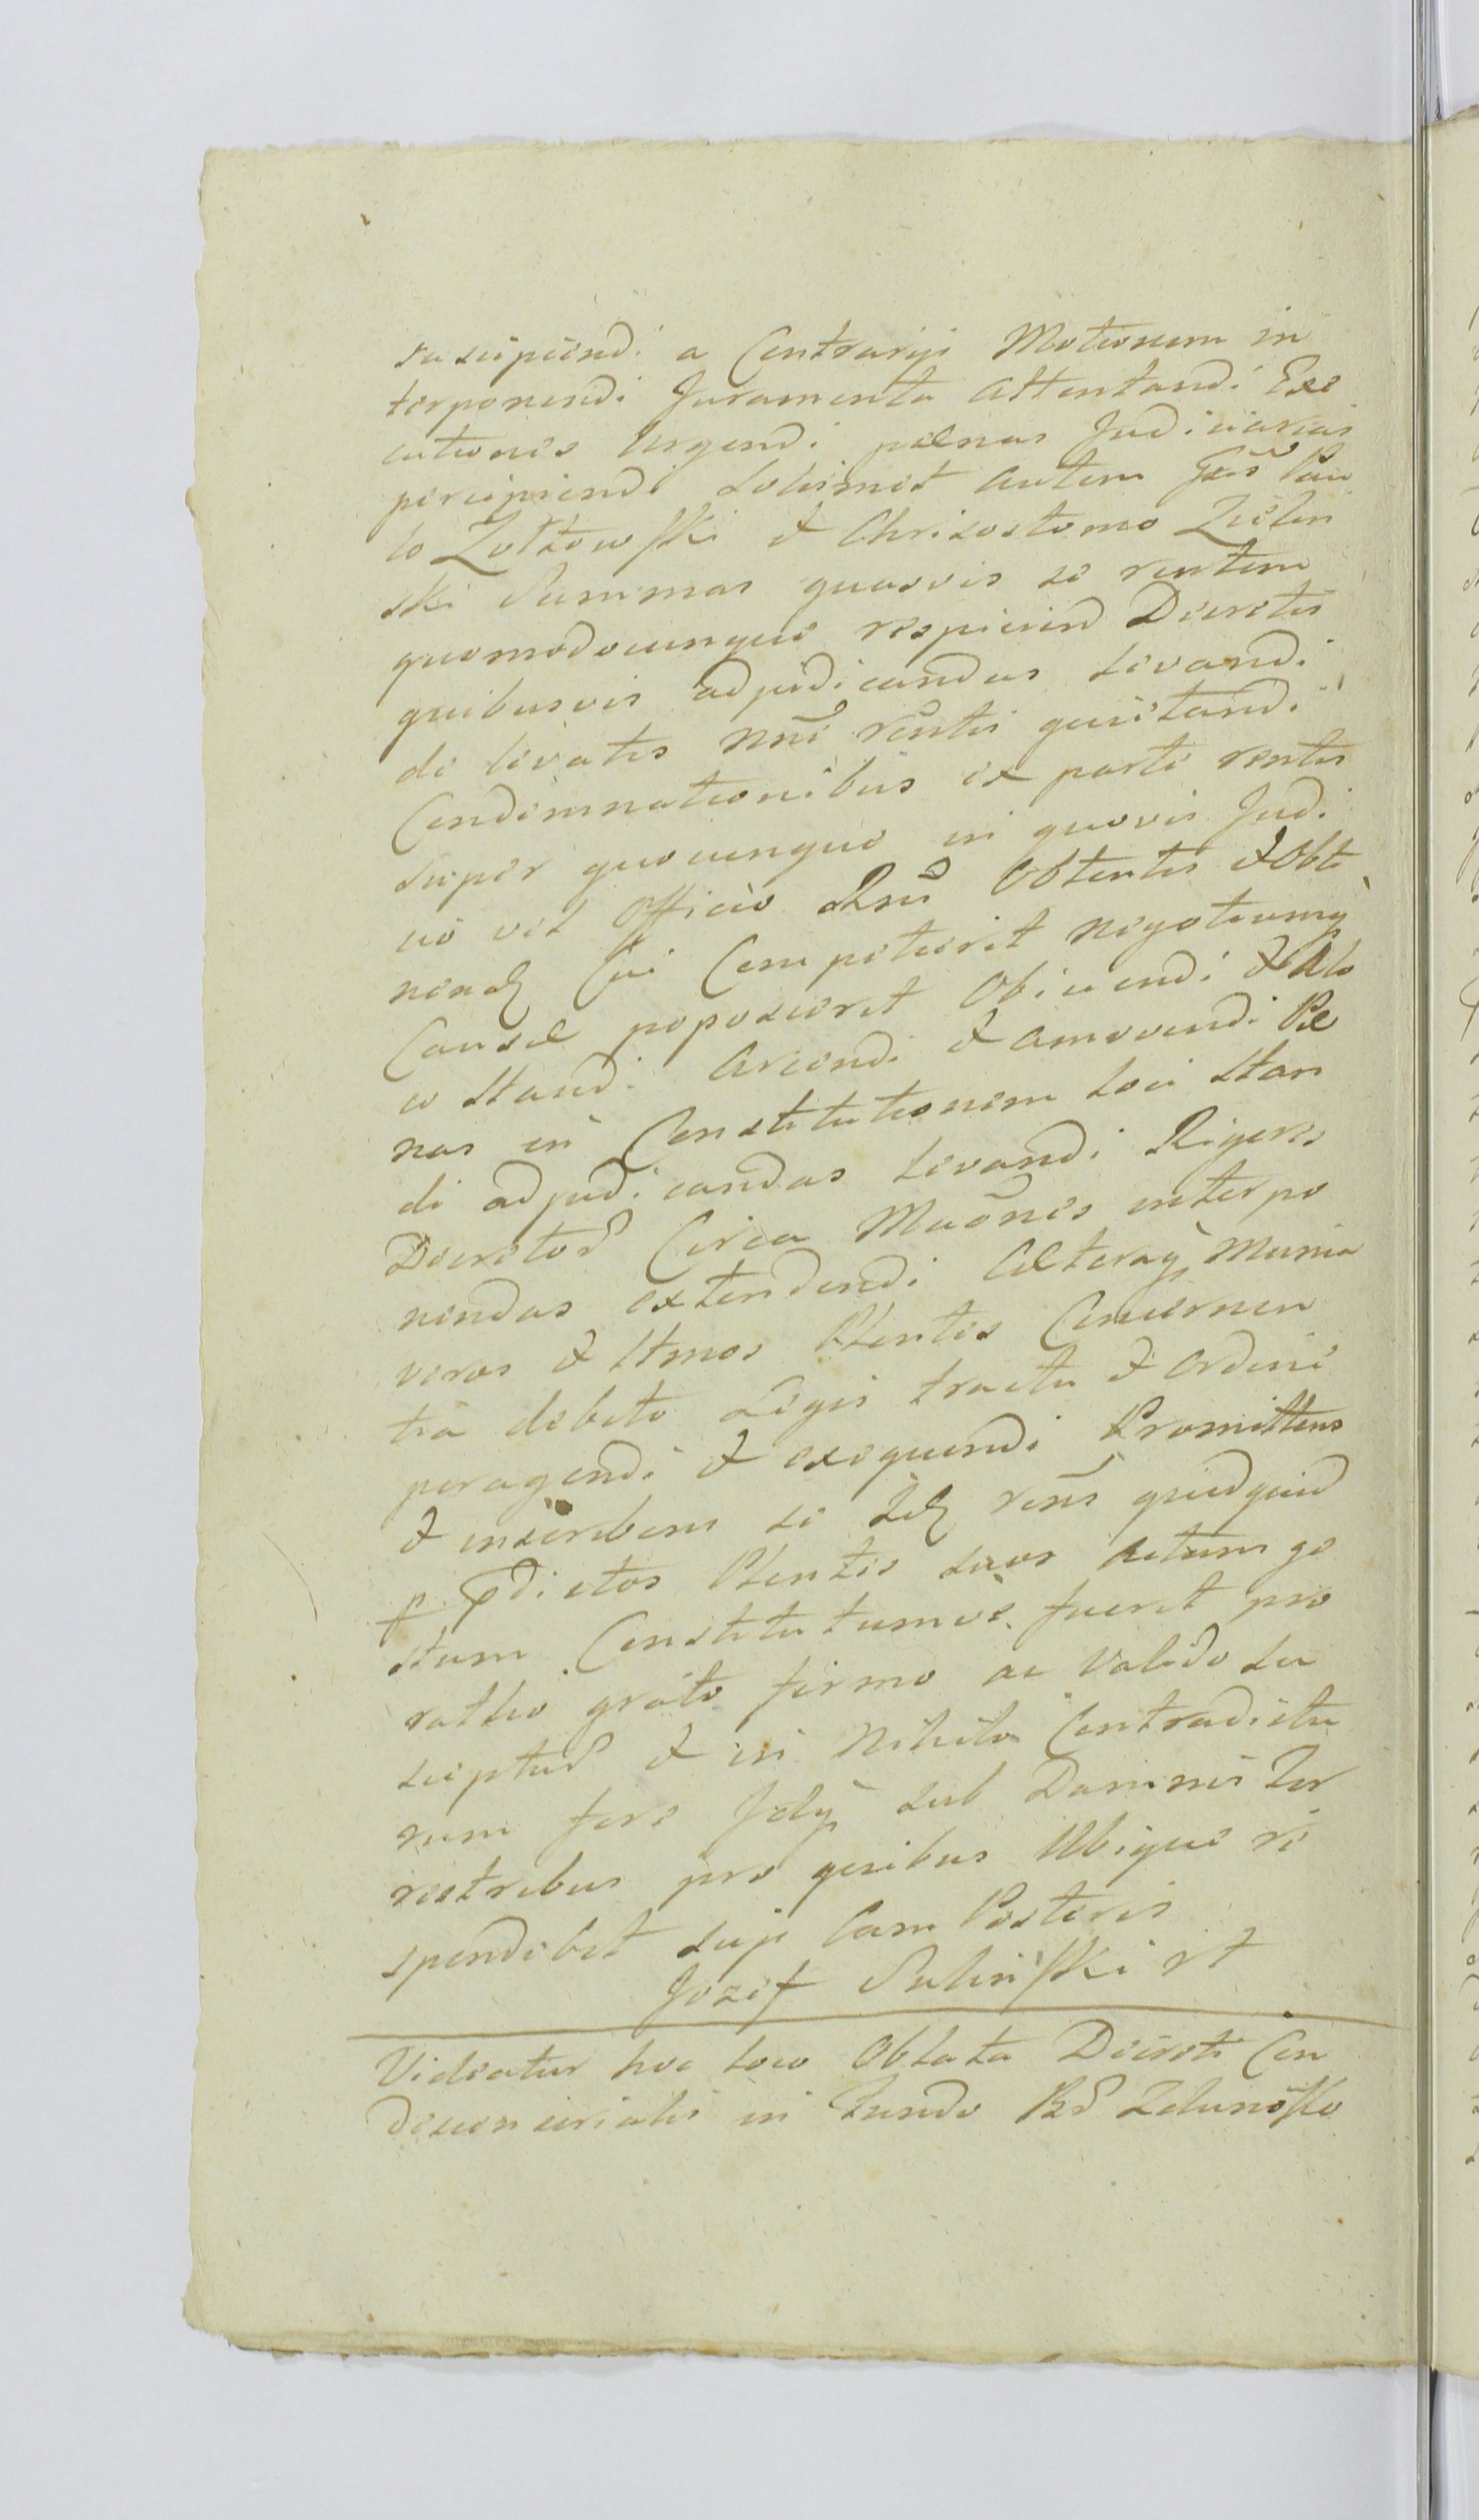 suscipiendi a Contrarijs Motionum in
terponendi Juramenta attentandi Exe
cutiones Urgendi pænas Judiciarias
percipiendi Solismet autem Pau
lo Zołtowski & Chrisostomo Zielin
ski Summas quasvis se rentem
quomodocunque respicien Decretis
quibusvis adjudicandas levandi
de levatis nni rentis quietandi
Condemnationibus ex parte rentis
super quocunque in quovis Judi
cio vel Officio Obtentis & Obti
nend Cui Competierit negotiumq
Causæ poposcerit Obicendi & Alo
co standi Arcendi & amovendi Pæ
nas in Constitutionem loci stan
di adjudicandas levandi Rigores
Decretor Circa Muones interpo
nendas extendendi Cæteraq Munia
veros & ltmos Plentes Concernen
tia debito Legis tractu & ordine
peragendi & exequendi Promittens
& inscribens se id rens quidquid
p pdictos Plentes suos Actum ge
stum Constitutumve fuerit pro
ratho grato firmo ac Valido su
sceptur & in Nihilo Contradictu
rum fore Idq sub Damnis Ter
restribus pro quibus Ubique re
spondebit sup Cum Posteris
Jozef Suliński
Videatur hoc loco Oblata Decreti Con
descensorialis in Fundo Zelunosko